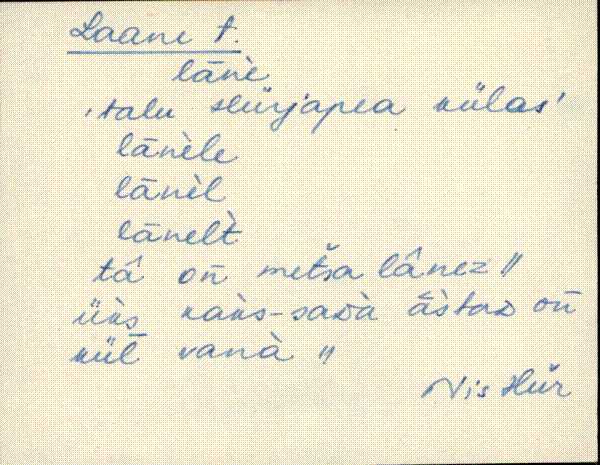 Laane t.
lānè
'talu Hürjapea külas'
lānèle
lānèl
lānelt̀
tâ on̄ metša lânez //
üks kaks-sadà āstaᴅ on̄
kül̄ vanà //
Nis Hür